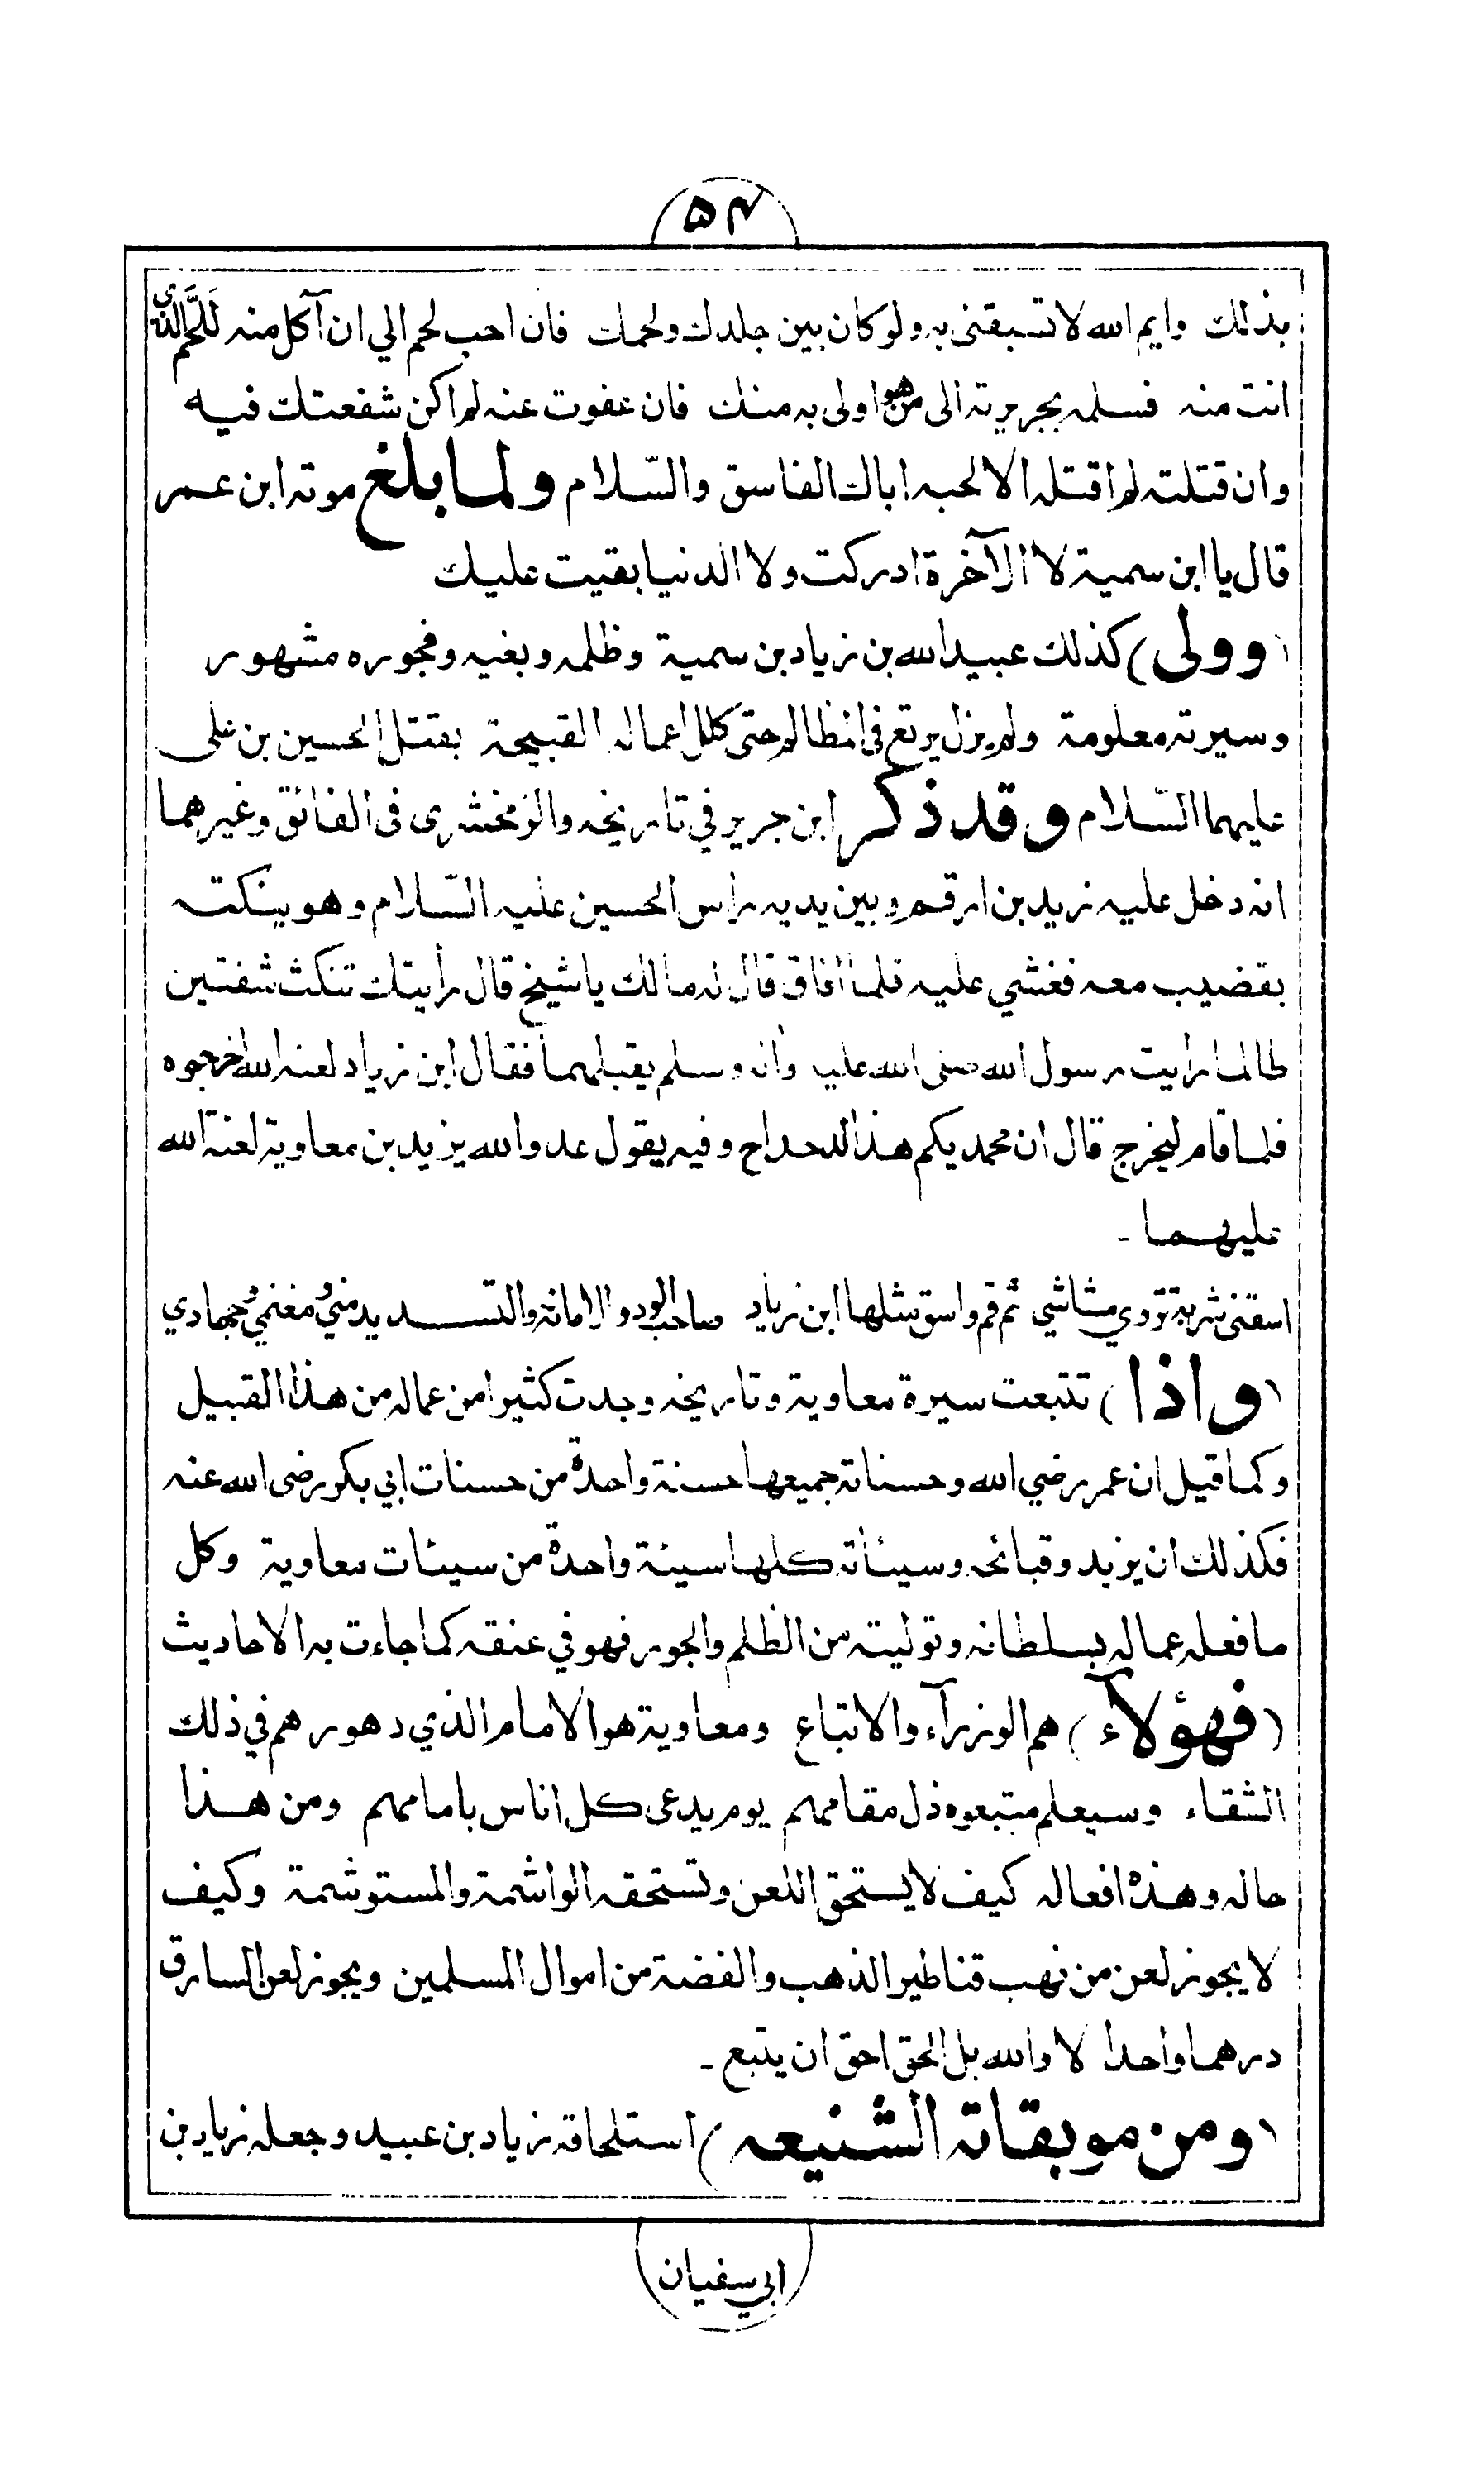 ۵۴
بذلك وايم الله لا تسبقنى به ولو كان بين جلدك ولحمك فان احب لحم الي ان آكل منه لَلَّحم الذى
انت منه فسلمه بجريرته الى من هو اولى به منك فان عفوت عنه لم اكن شفعتك فيه
وان قتلته لم اقتله الا لحبه اباك الفاسق والسّلام ولما بلغ موته ابن عمر
قال يا ابن سمية لا الآخرة ادركت ولا الدنيا بقيت عليك
(وولى) كذلك عبيد الله بن زياد بن سمية وظلمه وبغيه وفجوره مشهور
وسيرته معلومة ولم يزل يرتع فى المظالم حتى كلل اعماله القبيحة بقتل الحسين بن على
عليهما السّلام وقد ذكر ابن جرير في تاريخه والزمخشرى فى الفائق وغيرهما
انه دخل عليه زيد بن ارقم وبين يديه راس الحسين عليه السّلام وهو ينكته
بقضيب معه فغشي عليه فلما افاق قال له مالك يا شيخ قال رأيتك تنكث شفتين
طالما رايت رسول الله صلى الله عليه واله وسلم يقبلهما فقال ابن زياد لعنه الله اخرجوه
فلما قام ليخرج قال ان محمديكم هذا لدحداح وفيه يقول عدو الله يزيد بن معاوية لعنة الله
عليهما ـ
اسقنى شربة تروي مشاشي ثم قم واسق مثلها ابن زياد صاحب الود والامانة والتسديد مني ومغنمي وجهادي
(واذا) تتبعت سيرة معاوية وتاريخه وجدت كثيرا من عماله من هذا القبيل
وكما قيل ان عمر رضي الله وحسناته جميعها حسنة واحدة من حسنات ابي بكر رضى الله عنه
فكذلك ان يزيد وقبائحه وسيئاته كلها سيئة واحدة من سيئات معاوية وكل
ما فعله عماله بسلطانه وتوليته من الظلم والجور فهو في عنقه كما جاءت به الاحاديث
(فهؤلآء) هم الوزرآء والاتباع ومعاوية هو الامام الذي دهورهم في ذلك
الشقاء وسيعلم متبعوه ذل مقامهم يوم يدعى كل اناس بامامهم ومن هذا
حاله وهذه افعاله كيف لا يستحق اللعن وتستحقه الواشمة والمستوشمة وكيف
لا يجوز لعن من نهب قناطير الذهب والفضة من اموال المسلمين ويجوز لعن السارق
درهما واحدا لا والله بل الحق احق ان يتبع ـ
(ومن موبقاته الشنيعه) استلحاقه زياد بن عبيد وجعله زياد بن
ابي سفيان